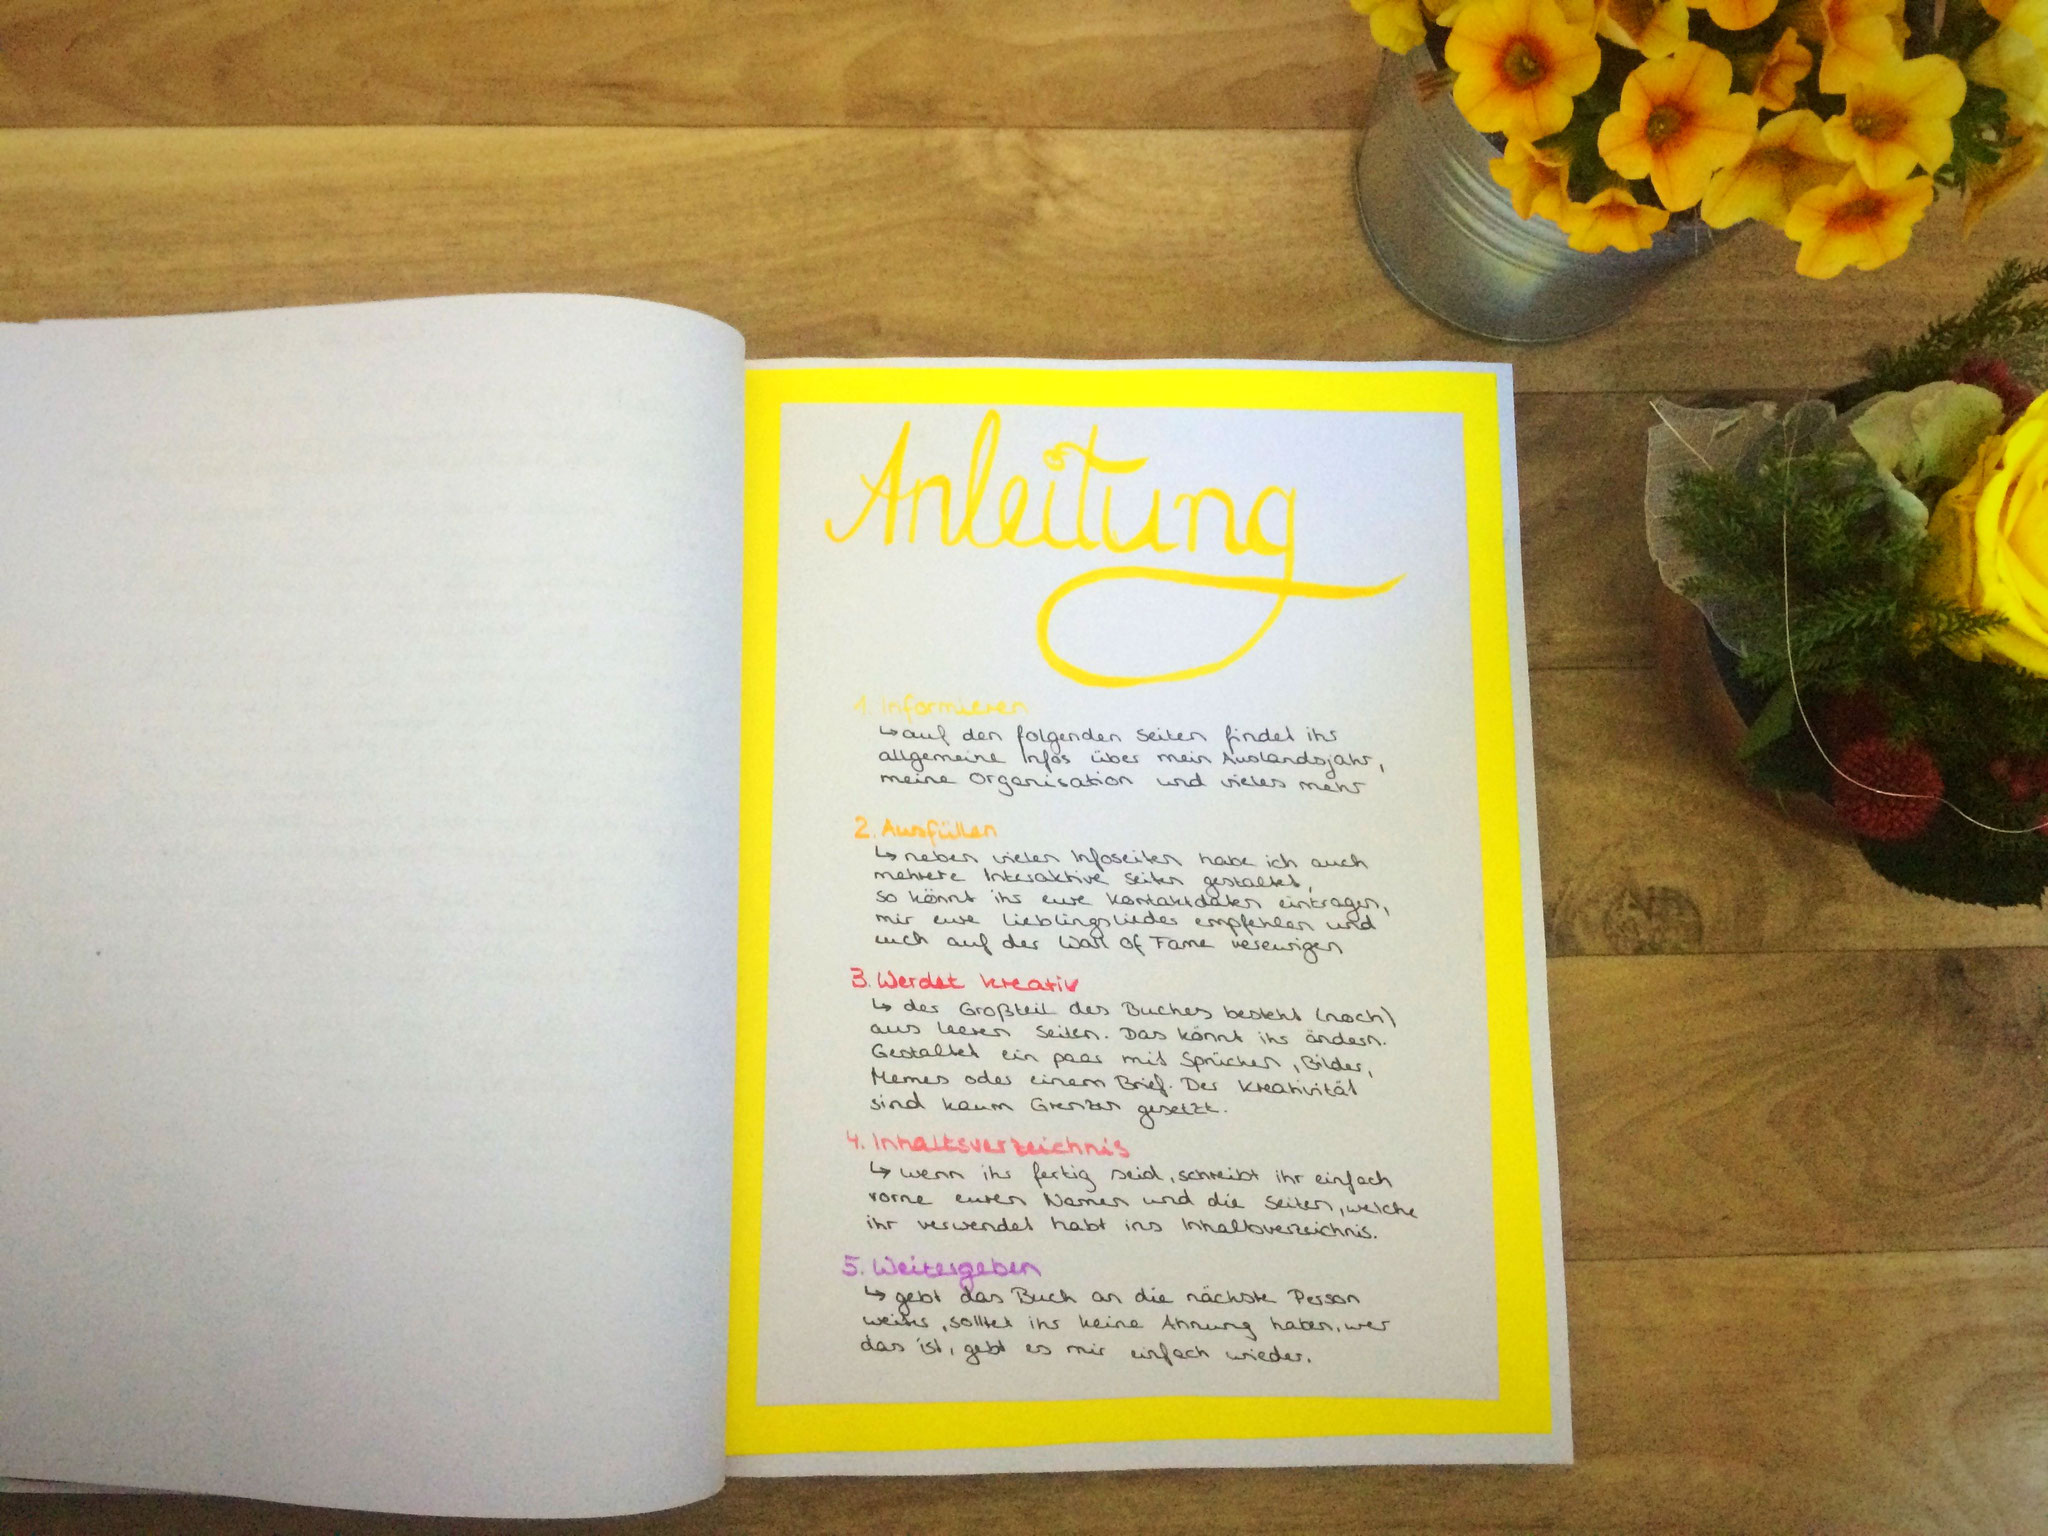 Anleitung
1. Informieren
↳ auf den folgenden Seiten findet ihr
allgemeine Infos über mein Auslandsjahr,
meine Organisation und vieles mehr
2. Ausfüllen
↳ neben vielen Infoseiten habe ich auch
mehrere Interaktive Seiten gestaltet,
so könnt ihr eure Kontaktdaten eintragen,
mir eure Lieblingslieder empfehlen und
euch auf der Wall of Fame verewigen
3. Werdet kreativ
↳ der Großteil des Buches besteht (noch)
aus leeren Seiten. Das könnt ihr ändern.
Gestaltet ein paar mit Sprüchen, Bilder,
Memes oder einem Brief. Der Kreativität
sind kaum Grenzen gesetzt.
4. Inhaltsverzeichnis
↳ wenn ihr fertig seid, schreibt ihr einfach
vorne euren Namen und die Seiten, welche
ihr verwendet habt ins Inhaltsverzeichnis.
5. Weitergeben
↳ gebt das Buch an die nächste Person
weiter, solltet ihr keine Ahnung haben, wer
das ist, gebt es mir einfach wieder.